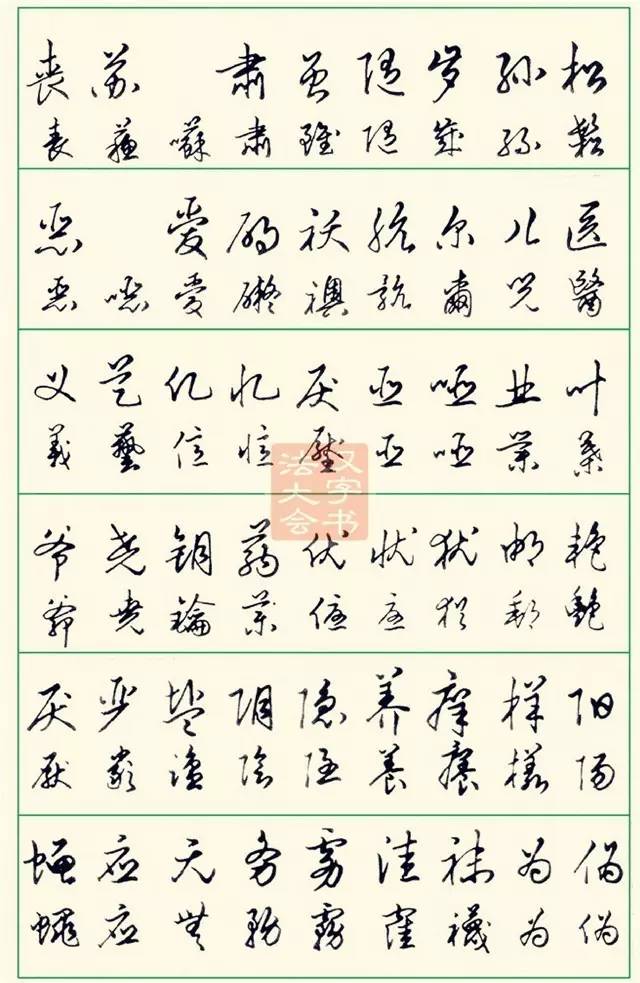 丧 苏 肃 虽 随 岁 孙 松
喪 蘇 囌 肅 雖 隨 歲 孫 鬆
恶 爱 碍 袄 肮 尔 儿 医
惡 噁 愛 礙 襖 骯 爾 兒 醫
义 艺 亿 忆 压 亚 哑 业 叶
義 藝 億 憶 壓 亞 啞 業 葉
汉字书
法大会
爷 尧 钥 药 优 忧 犹 邮 艳
爺 堯 鑰 藥 優 憂 猶 郵 艷
厌 严 盐 阴 隐 养 痒 样 阳
厭 嚴 鹽 陰 隱 養 癢 樣 陽
蝇 应 无 务 雾 洼 袜 为 伪
蠅 應 無 務 霧 窪 襪 為 偽